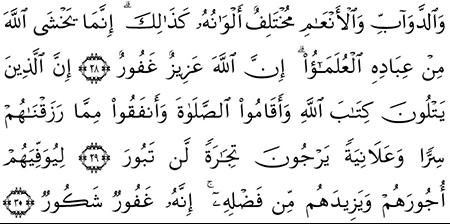 وَٱلدَّوَآبِّ وَٱلْأَنْعَٰمِ مُخْتَلِفٌ أَلْوَٰنُهُۥ كَذَٰلِكَ ۗ إِنَّمَا يَخْشَى ٱللَّهَ
مِنْ عِبَادِهِ ٱلْعُلَمَٰٓؤُا۟ ۗ إِنَّ ٱللَّهَ عَزِيزٌ غَفُورٌ ﴿٢٨﴾ إِنَّ ٱلَّذِينَ
يَتْلُونَ كِتَٰبَ ٱللَّهِ وَأَقَامُوا۟ ٱلصَّلَوٰةَ وَأَنفَقُوا۟ مِمَّا رَزَقْنَٰهُمْ
سِرًّا وَعَلَانِيَةً يَرْجُونَ تِجَٰرَةً لَّن تَبُورَ ﴿٢٩﴾ لِيُوَفِّيَهُمْ
أُجُورَهُمْ وَيَزِيدَهُم مِّن فَضْلِهِۦٓ ۚ إِنَّهُۥ غَفُورٌ شَكُورٌ ﴿٣٠﴾